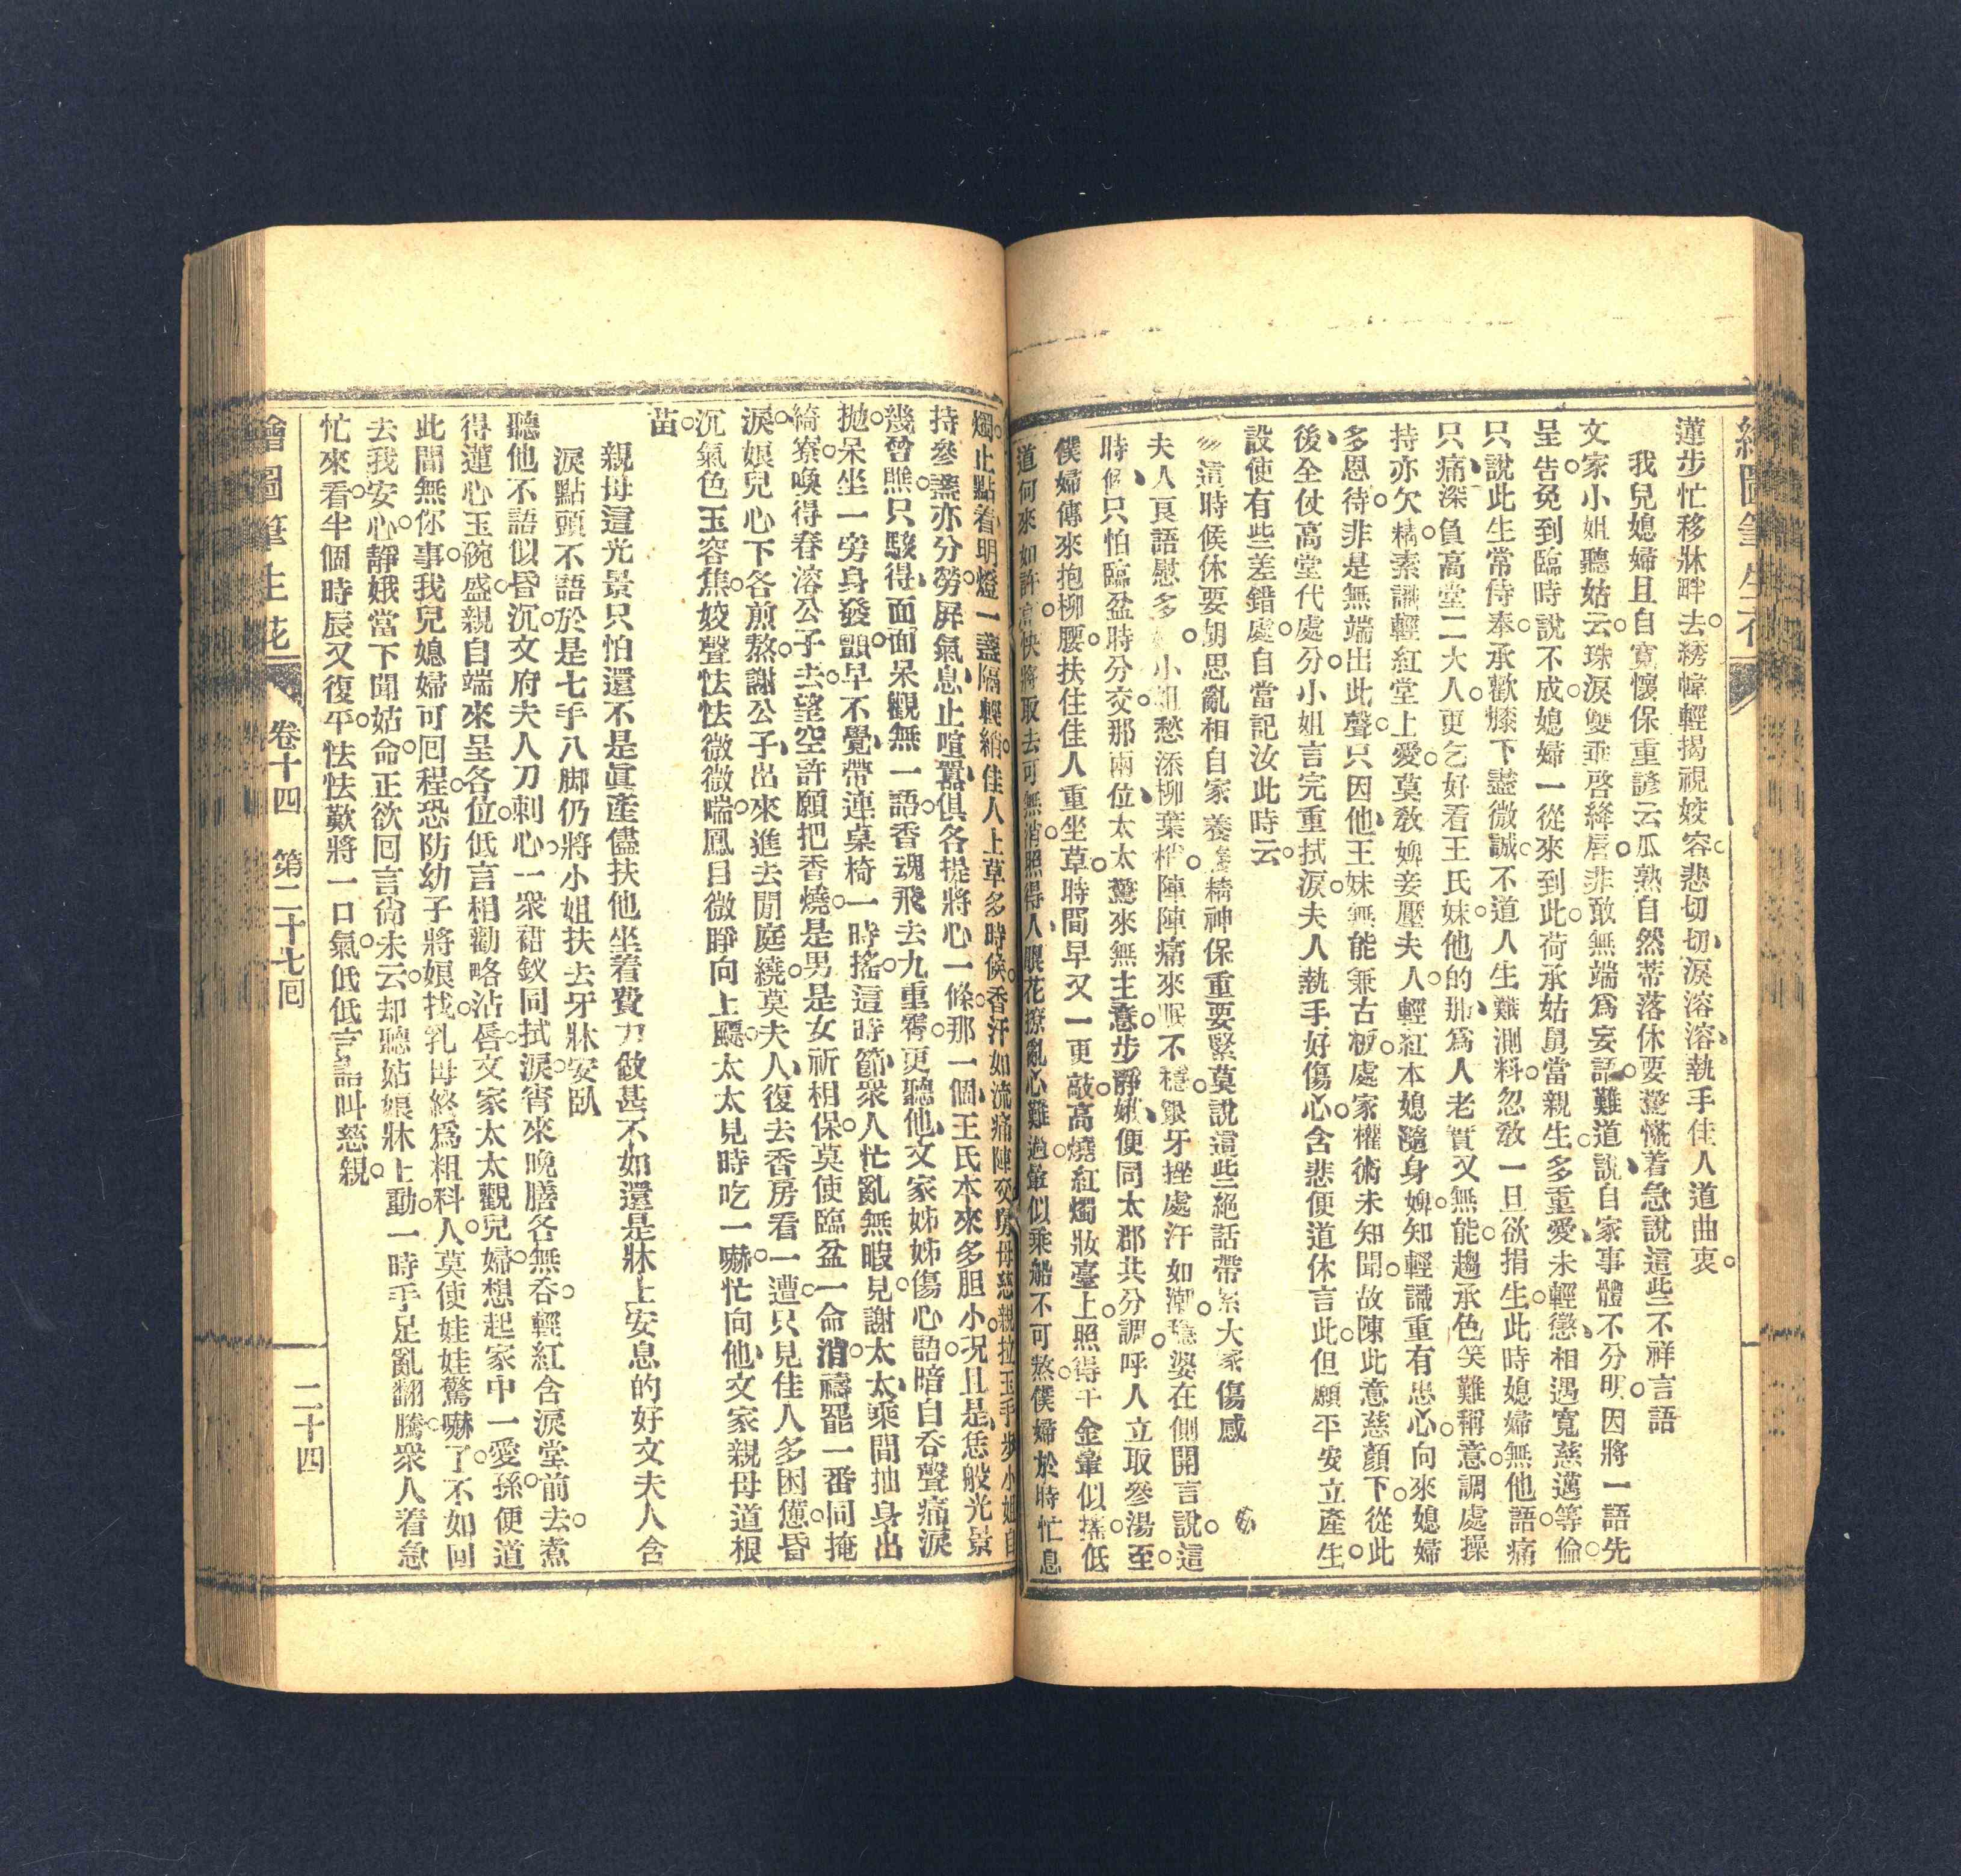 繪圖筆生花
蓮步忙移牀畔去。綉幃輕揭視姣容。悲切切、淚溶溶、執手佳人道曲衷。
我兒媳婦且自寬懷保重諺云瓜熟自然蒂落休要驚慌着急說這些不祥言語
文家小姐聽姑云。珠淚雙垂啓絳唇。非敢無端爲妄語。難道說、自家事體不分明。因將一語先
呈告。免到臨時說不成。媳婦一從來到此。荷承姑舅當親生。多重愛、未輕懲、相遇寬慈邁等倫。
只說此生常侍奉。承歡膝下盡微誠。不道人生難測料。忽教一旦欲捐生。此時媳婦無他語。痛
只痛、深負高堂二大人。更乞好看王氏妹。他的那、爲人老實又無能。趨承色笑難稱意。調處操
持亦欠精。素識輕紅堂上愛。莫教婢妾壓夫人。輕紅本媳隨身婢。知輕識重有忠心。向來媳婦
多恩待。非是無端出此聲。只因他、王妹無能兼古板。處家權術未知聞。故陳此意慈顏下。從此
後、全仗高堂代處分。小姐言完重拭淚。夫人執手好傷心。含悲便道休言此。但願平安立產生。
設使有些差錯處。自當記汝此時云。
這時候休要胡思亂相自家養養精神保重要緊莫說這些絕話帶累大家傷感
夫人良語慰多。小姐愁添柳葉梢。陣陣痛來眠不穩。銀牙挫處汗如潮。穩婆在側開言說。這
時候、只怕臨盆時分交。那兩位、太太驚來無主意。步靜娥、便同太郡共分調。呼人立取參湯至。
僕婦傳來抱柳腰。扶住佳人重坐草。時間早又一更敲。高燒紅燭妝臺上。照得千金暈似搖。低
道何來如許亮。快將取去可無消。照得人、眼花撩亂心難過。暈似乘船不可熬。僕婦於時忙息
燭。止點着明燈一盞隔輕綃。佳人上草多時候。香汗如流痛陣交。舅母慈親拉玉手。步小姐、自
持參藥亦分勞。屏氣息、止喧囂、俱各提將心一條。那一個、王氏本來多胆小。况且是、恁般光景
幾曾瞧。只駭得、面面呆觀無一語。香魂飛去九重霄。更聽他、文家姊姊傷心語。暗自吞聲痛淚
拋。呆坐一旁身發顫。早不覺、帶連桌椅一時搖。這時節、衆人忙亂無暇見。謝太太、乘間抽身出
綺寮。喚得春溶公子去。望空許願把香燒。是男是女祈相保。莫使臨盆一命消。禱罷一番同掩
淚。娘兒心下各煎熬。謝公子、出來進去閒庭繞。莫夫人、復去香房看一遭。只見佳人多困憊。昏
沉氣色玉容焦。姣聲怯怯微微喘。鳳目微睜向上飄。太太見時吃一嚇。忙向他、文家親母道根
苗。
親母這光景只怕還不是眞產儘扶他坐着費力做甚不如還是牀上安息的好文夫人含
淚點頭不語於是七手八脚仍將小姐扶去牙牀安臥
聽他不語似昏沉。文府夫人刀刺心。一衆裙釵同拭淚。宵來晚膳各無吞。輕紅含淚堂前去。煮
得蓮心玉碗盛。親自端來呈各位。低言相勸略沾唇。文家太太觀兒婦。想起家中一愛孫。便道
此間無你事。我兒媳婦可回程。恐防幼子將娘找。乳母終爲粗料人。莫使娃娃驚嚇了。不如回
去我安心。靜娥當下聞姑命。正欲回言尙未云。却聽姑娘牀上動。一時手足亂翻騰。衆人着急
忙來看。半個時辰又復平。怯怯歎將一口氣。低低言語叫慈親。
繪圖筆生花 卷十四 第二十七回 二十四